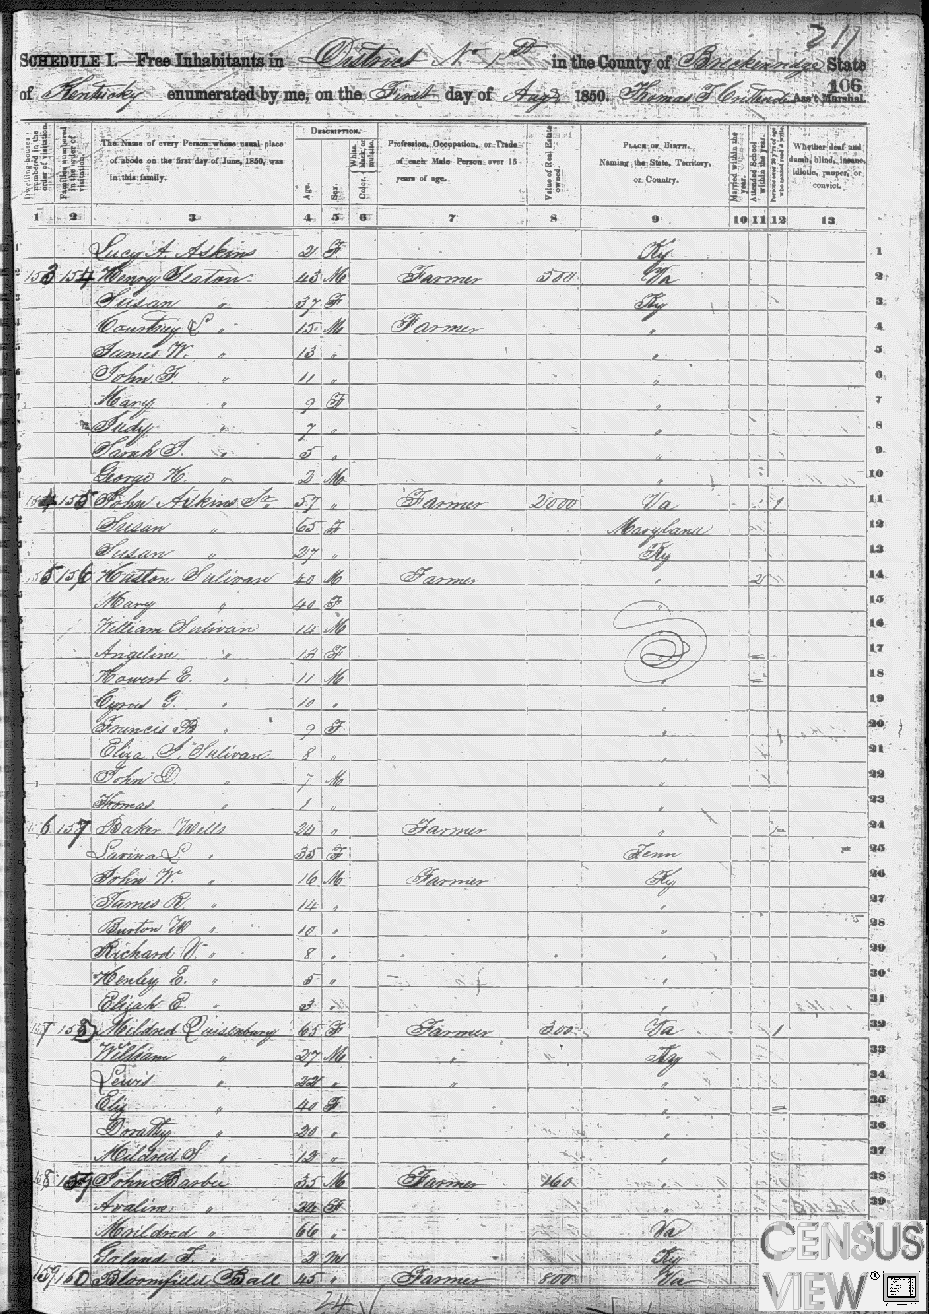 217
SCHEDULE I.—Free Inhabitants in District No 1st in the County of Breckenridge State
of Kentucky enumerated by me, on the First day of Augt 1850. Thomas J Ass't Marshal.
106
Dwelling-houses numbered in the order of visitation.
Families numbered in the order of visitation.
The Name of every Person whose usual place of abode on the first day of June, 1850, was in this family.
DESCRIPTION.
Age.
Sex.
Color, White, black, or mulatto.
Profession, Occupation, or Trade of each Male Person over 15 years of age.
Value of Real Estate owned.
PLACE OF BIRTH, Naming the State, Territory, or Country.
Married within the year.
Attended School within the year.
Persons over 20 y'rs of age who cannot read & write.
Whether deaf and dumb, blind, insane, idiotic, pauper, or convict.
1 2 3 4 5 6 7 8 9 10 11 12 13
Lucy A. Askins 21 F Ky 1
153 154 Henry Seaton 43 M Farmer 500 Va 2
Susan " 37 F Ky 3
Courtney L " 15 M Farmer " 4
James W. " 13 " " 5
John F. " 11 " " 6
Mary " 9 F " 7
Judy " 7 " " 8
Sarah F. " 5 " " 9
George H. " 2 M " 10
154 155 John Askins Sr. 57 " Farmer 2000 Va 1 11
Susan " 65 F Maryland 12
Susan " 27 " Ky 13
155 156 Huston Sulivan 40 M Farmer " 14
Mary " 40 F 15
William Sulivan 14 M 16
Angeline " 12 F 17
Howert E. " 11 M " 18
Cyrus G. " 10 " " 19
Francis B " 9 F " 20
Eliza S. Sulivan 8 " " 21
John D " 7 M " 22
Thomas " 1 " " 23
156 157 Baker Wells 24 " Farmer " 24
Lavina L " 35 F Tenn 25
John W. " 16 M Farmer Ky 26
James R. " 14 " " 27
Burton W " 10 " " 28
Richard V. " 8 " " 29
Henley E. " 5 " " 30
Elijah E. " 3 " " 31
157 158 Mildred Quisenbury 65 F Farmer 300 Va 1 32
William " 27 M " Ky 33
Lewis " 22 " " " 34
Eliz " 40 F " 35
Dorathy " 20 " " 36
Mildred S " 12 " " 37
158 159 John Barbee 35 M Farmer 160 " 38
Avaline " 34 F " 39
Mrildred " 66 " Va
Galand T. " 2 M Ky
159 160 Bloomfield Ball 45 " Farmer 800 Va
24
CENSUS
VIEW®